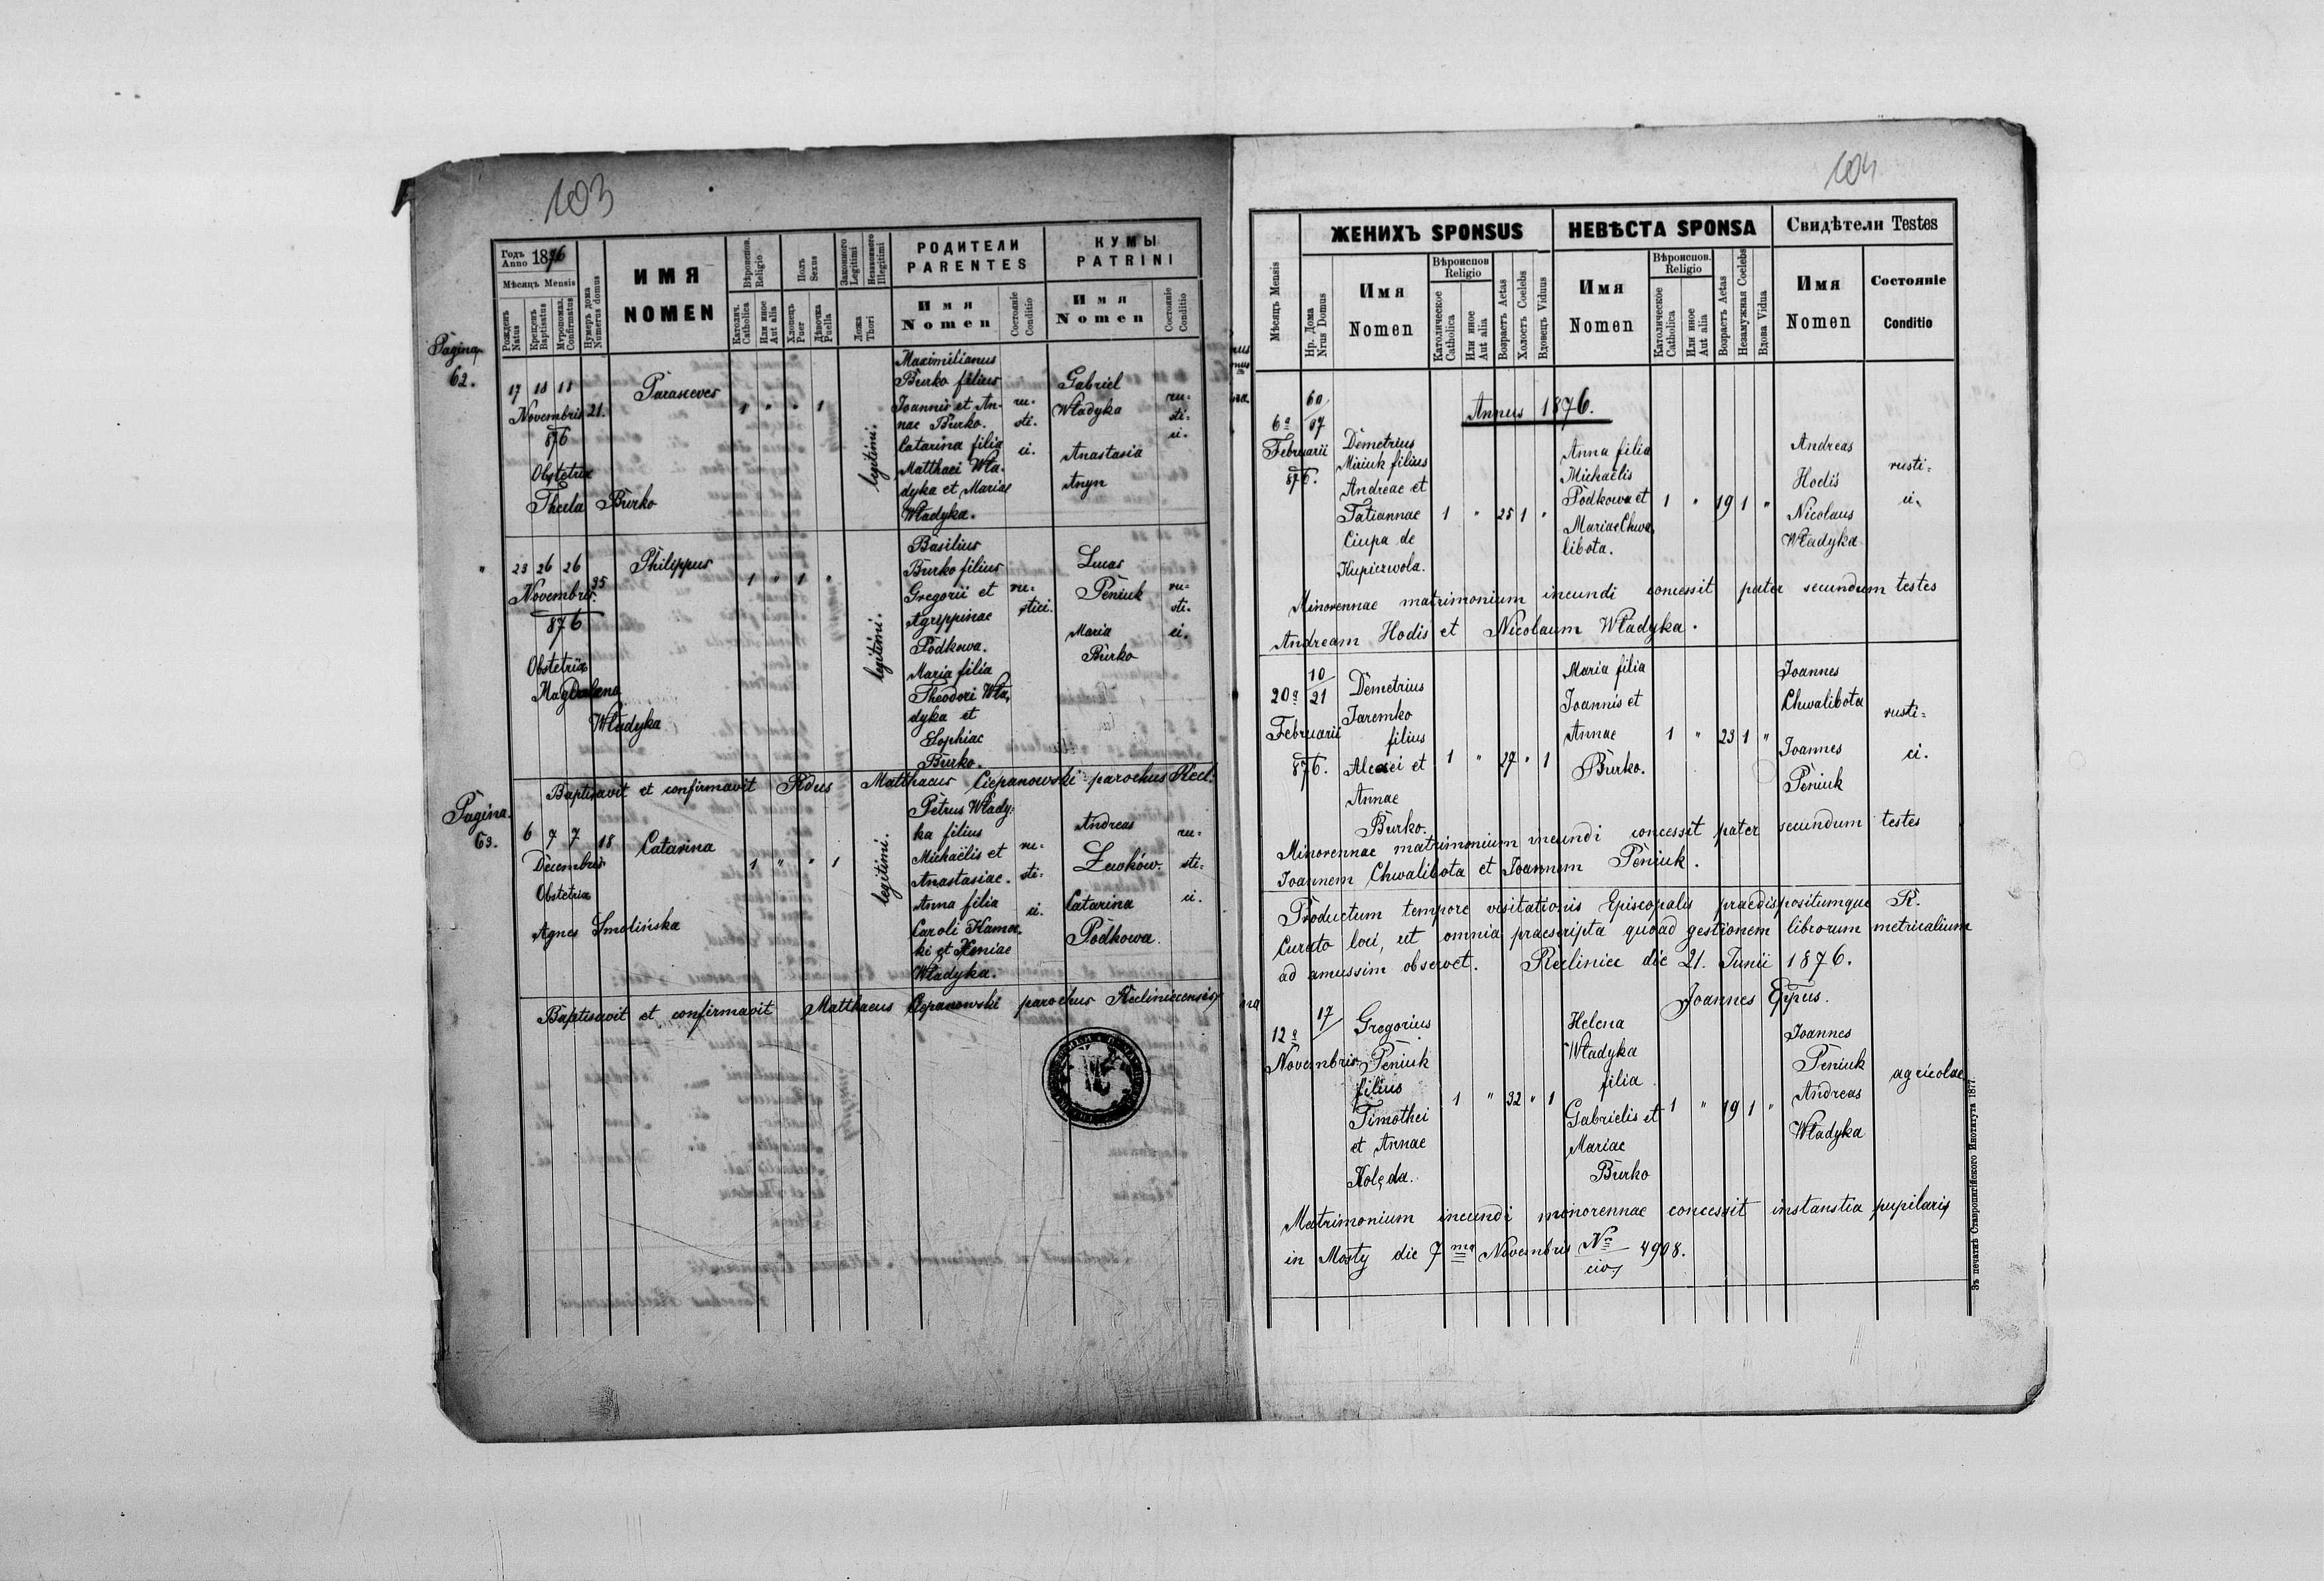 103
Годъ Anno 1876
Мѣсяцъ Mensis
Рожденъ Natus
Крещенъ Baptisatus
Мѵропомаз. Confirmatus
Нумеръ дома Numerus domus
ИМЯ
NOMEN
Вѣроиспов. Religio
Католич. Catholica
Или иное Aut alia
Полъ Sexus
Хлопецъ Puer
Дѣвочка Puella
Законного Legitimi
Незаконного Illegitimi
Ложа Thori
РОДИТЕЛИ
PARENTES
Имя
Nomen
Состояніе Conditio
КУМЫ
PATRINI
Имя
Nomen
Состояніе Conditio
Pagina
62.
17 18 18
Novembris 21.
876
Obstetrix
Thecla Burko
Parasceves
1 " " 1
legitimi.
Maximilianus
Burko filius
Joannis et An-
nae Burko.
Catarina filia
Matthaei Wła-
dyka et Mariae
Władyka.
ru-
sti-
ci.
Gabriel
Władyka
Anastasia
Anyn
ru-
sti-
ci.
" 23 26 26
Novembris 35
876
Obstetrix
Magdalena
Władyka
Philippus
1 " 1 "
legitimi.
Basilius
Burko filius
Gregorii et
Agrippinae
Podkowa.
Maria filia
Theodori Wła-
dyka et
Sophiae
Burko.
ru-
stici.
Lucas
Peniuk
Maria
Burko
ru-
sti-
ci.
Baptisavit et confirmavit Rdus Matthaeus Ciepanowski parochus Recl.
Pagina
63.
6 7 7 18
Decembris
Obstetrix
Agnes Smolińska
Catarina
1 " " 1
legitimi.
Petrus Włady-
ka filius
Michaëlis et
Anastasiae.
Anna filia
Caroli
Władyka.
ru-
sti-
ci.
Andreas
Catarina
Podkowa.
ru-
sti-
ci.
Baptisavit et confirmavit Matthaeus Ciepanowski parochus Recliniecensis
104
ЖЕНИХЪ SPONSUS
НЕВѢСТА SPONSA
Свидѣтели Testes
Мѣсяцъ Mensis
Нр. Дома Nrus Domus
Имя
Nomen
Вѣроиспов Religio
Католическое Catholica
Или иное Aut alia
Возрастъ Aetas
Холостъ Coelebs
Вдовецъ Viduus
Имя
Nomen
Вѣроиспов. Religio
Католическое Catholica
Или иное Aut alia
Возрастъ Aetas
Незамужная Coelebs
Вдова Vidua
Имя
Nomen
Состояніе
Conditio
Annus 1876.
6a
Februarii
876.
60/
87
Demetrius
Miziuk filius
Andreae et
Tatiannae
Ciupa de
Kupiczwola.
1 " 25 1 "
Anna filia
Michaëlis
Podkowa et
Mariae Chwa-
libota.
1 " 19 1 "
Andreas
Hodis
Nicolaus
Władyka
rusti-
ci.
Minorennae matrimonium ineundi concessit pater secundum testes
Andream Hodis et Nicolaum Władyka.
20a
Februarii
876.
10
21
Demetrius
Jaremko
filius
Alexei et
Annae
Burko.
1 " 27 " 1
Maria filia
Joannis et
Annae
Burko.
1 " 23 1 "
Joannes
Chwalibota
Joannes
Peniuk
rusti-
ci.
Minorennae matrimonium ineundi concessit pater secundum testes
Joannem Chwalibota et Joannem Peniuk.
Productum tempore visitationis Episcopalis praedispositumque R.
Curato loci, ut omnia praescripta quoad gestionem librorum metricalium
ad amussim observet. Recliniec die 21. Junii 1876.
Joannes Eppus.
12a
Novembris
17/
Gregorius
Peniuk
filius
Timothei
et Annae
Kolęda.
1 " 32 " 1
Helena
Władyka
filia
Gabrielis et
Mariae
Burko
1 " 19 1 "
Joannes
Peniuk
Andreas
Władyka
agricolae
Matrimonium ineundi monorennae concessit instanstia pupilaris
in Mosty die 7ma Novembris Nr 4908.
civ.
Зъ печатнѣ Ставропигійского Института 1877.